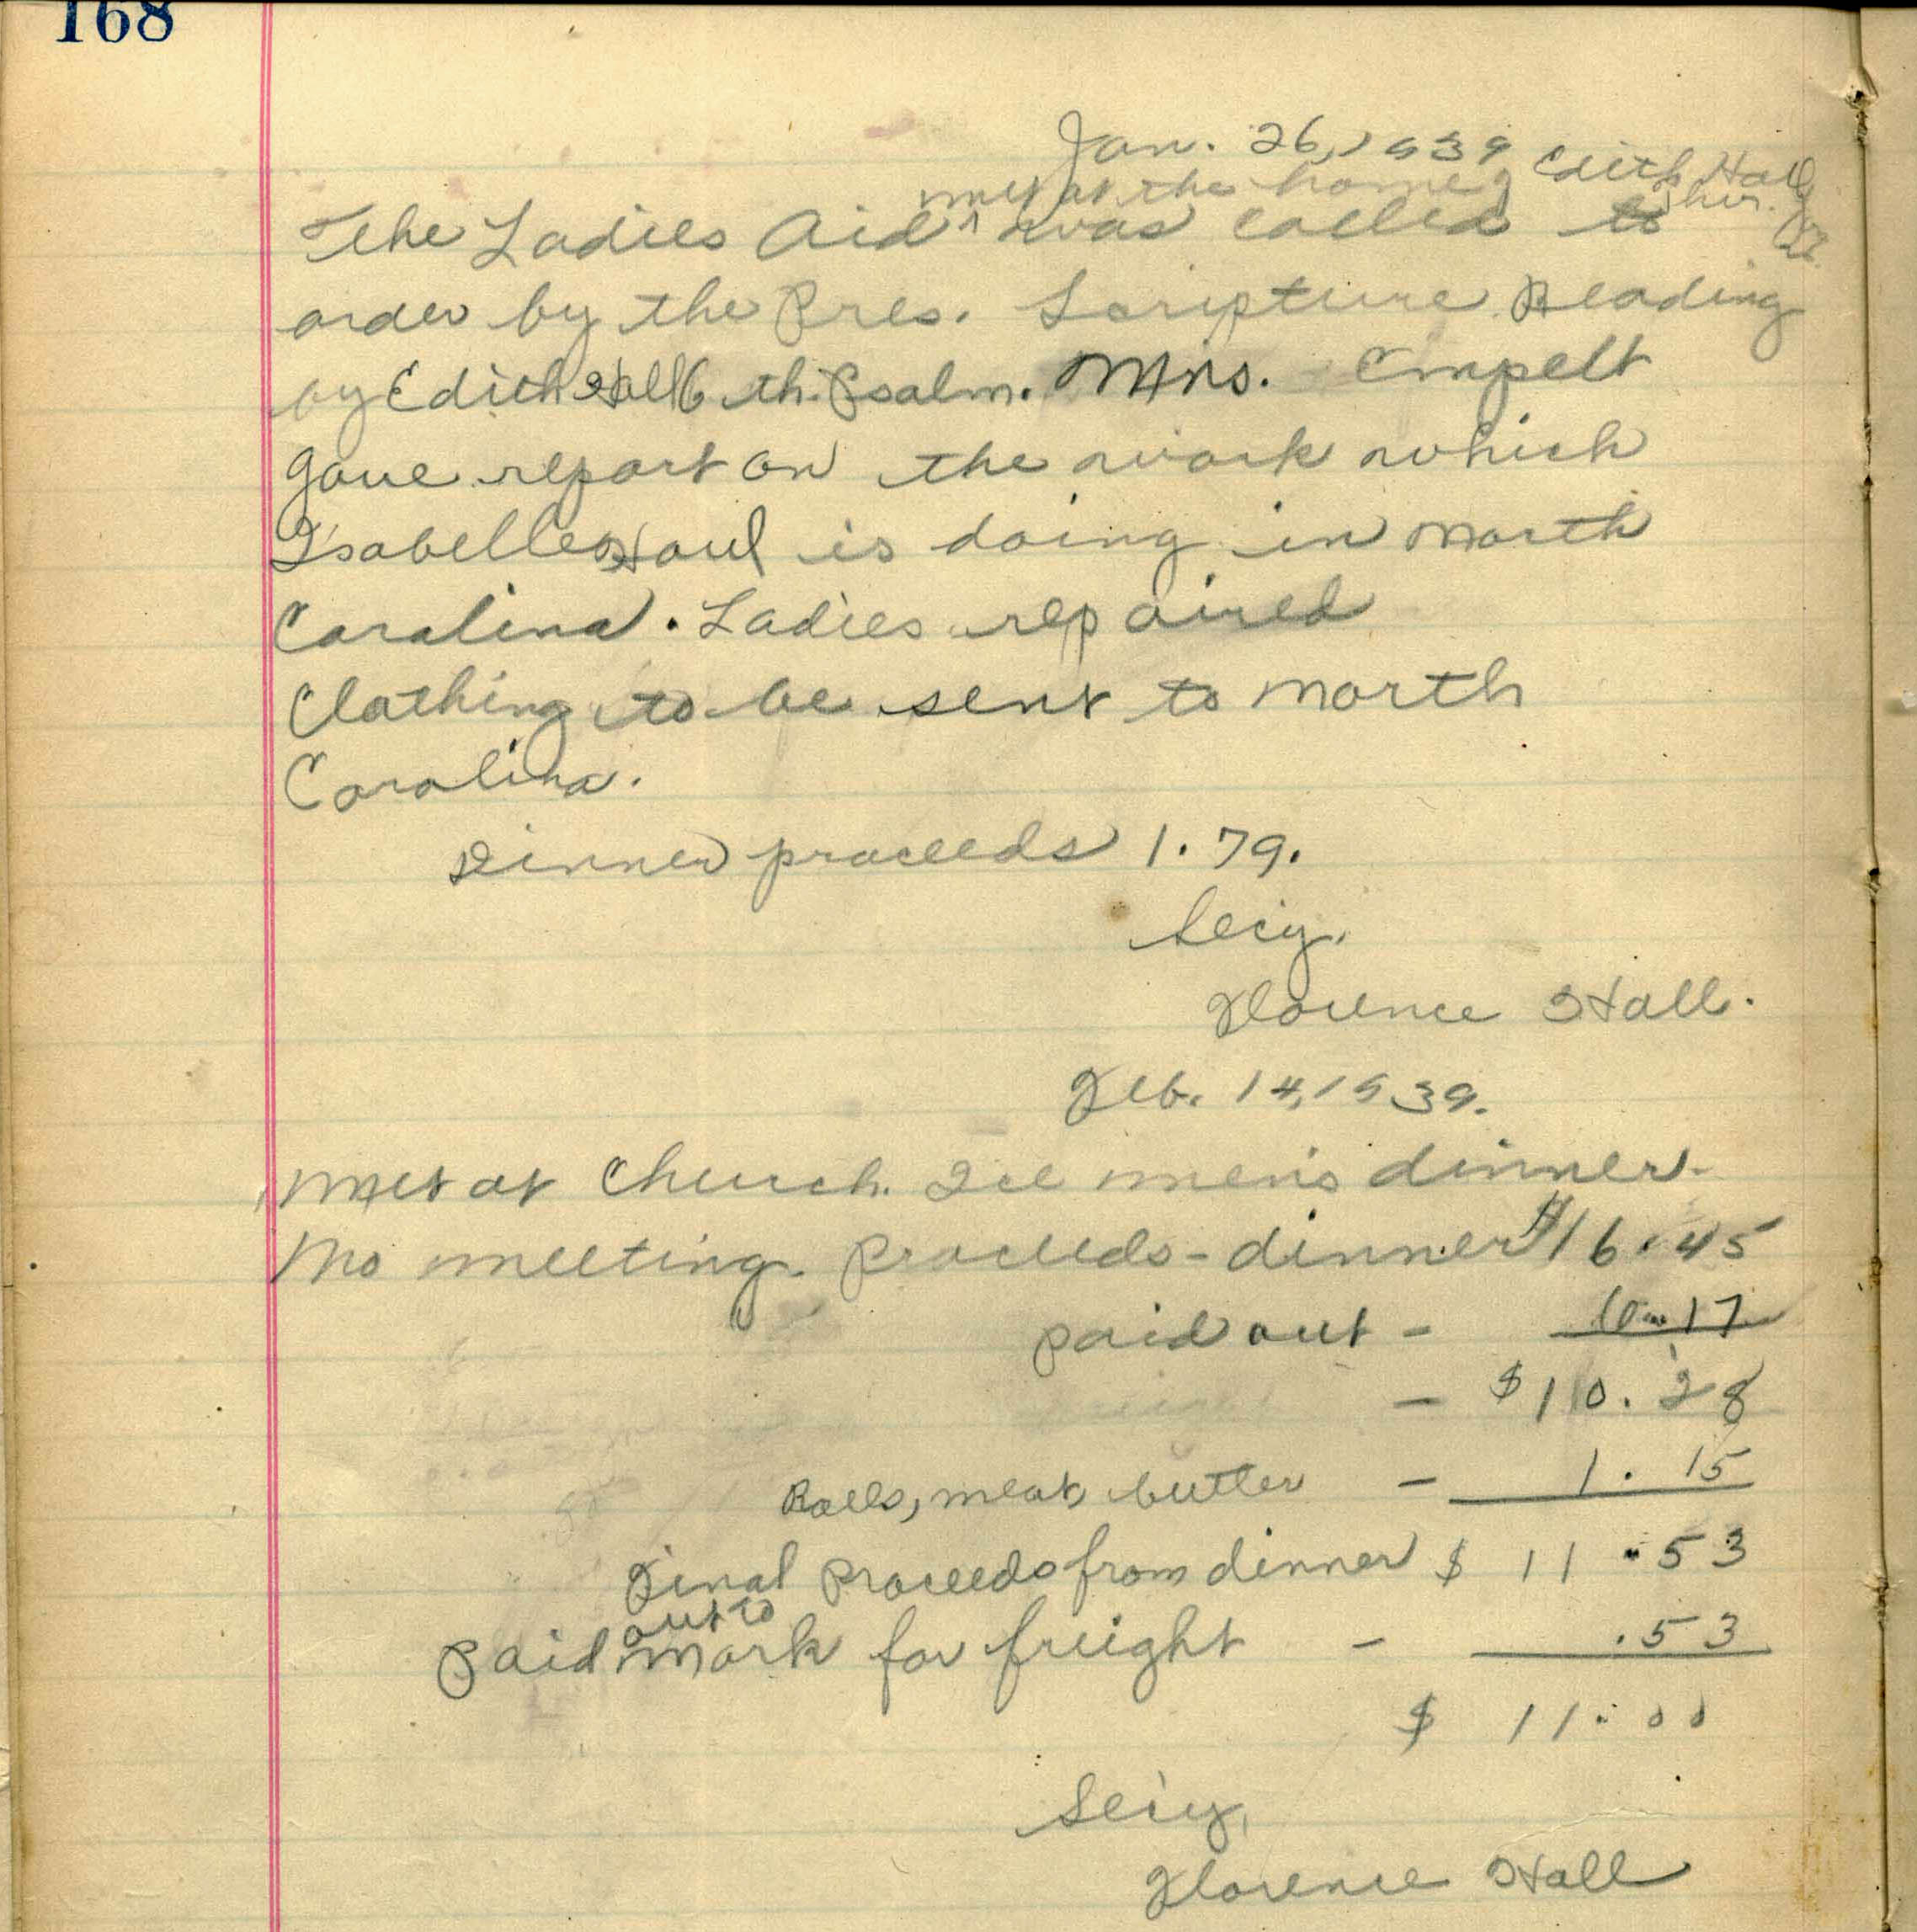 168
Jan. 26, 1939
met at the home of Edith Hall
The Ladies Aid was called to
order by the Pres. Scripture Reading
by Edith Hall 6 th. Psalm. Mrs. Empelt
gave report on the work which
Isabelle Haul is doing in North
Carolina. Ladies repaired
Clothing to be sent to North
Carolina.
Dinner proceeds 1.79.
Sec'y.
Florence Hall.
Feb. 14, 1939.
Met at Church. Ice men's dinner.
No meeting. Proceeds - dinner $16.45
paid out - 6.17
- $10.28
Rolls, meat, butter - 1.15
Final proceeds from dinner $ 11.53
out to
Paid Mark for freight - .53
$ 11.00
Sec'y,
Florence Hall